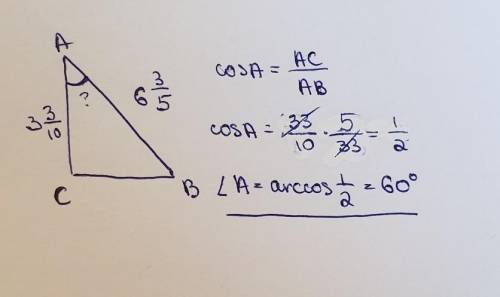 A
3 3/10
?
6 3/5
C
B
cosA = AC/AB
cosA = 33/10 · 5/33 = 1/2
∠A = arccos 1/2 = 60°